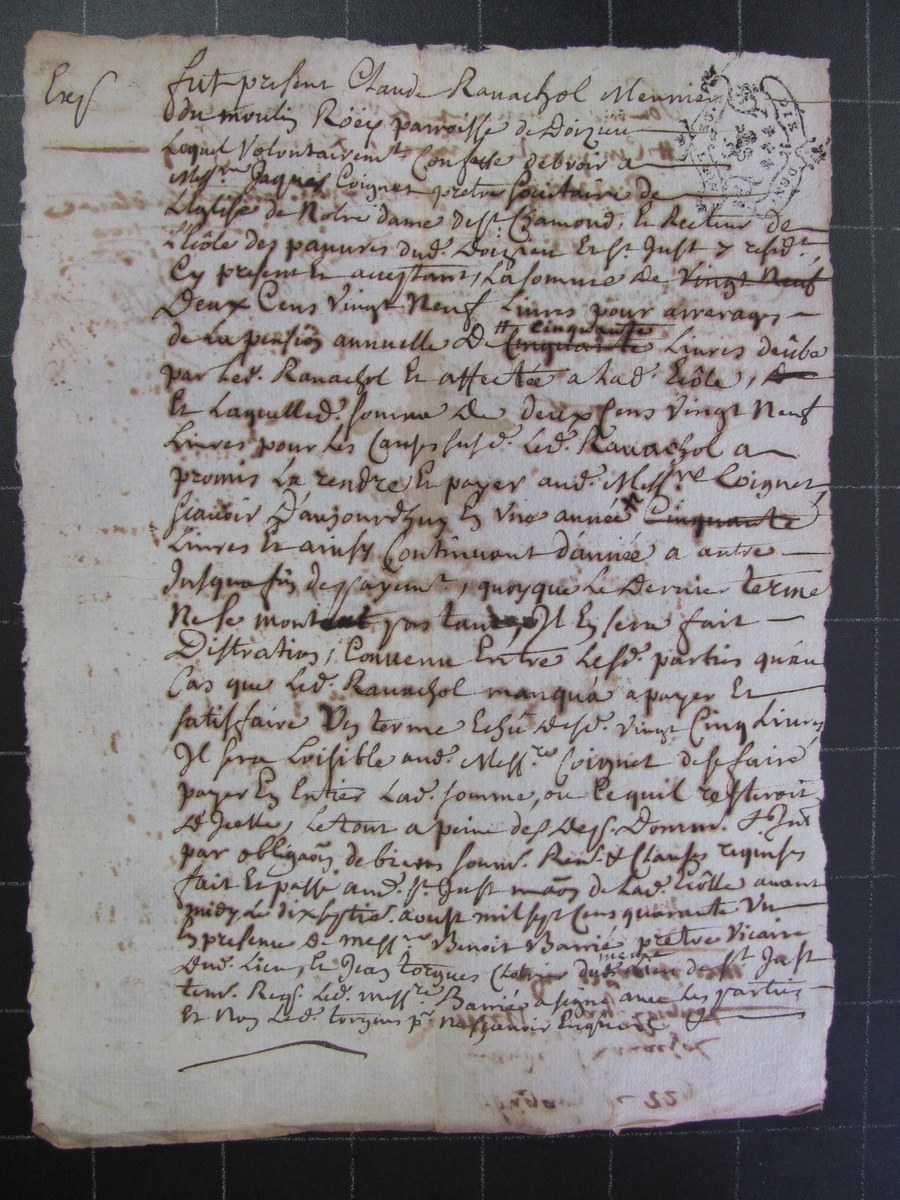 Exp
fut present Claude Ravachol Meunier
du moulin Röëx parroisse de Doizieu
Lequel Volontairemt. Confesse debvoir a
Messre. Jaques Coignet pretre Societaire de
L'Eglise de Notre dame de St. Chamond, Et Recteur de
L'Ecôle des pauvres dud. Doizieu Et St. Just y residt.,
Cy present Et acceptant, La somme de Vingt Neuf
Deux Cens Vingt Neuf Livres pour arrerages
de la pension annuelle De cinquante Livres deübe
par Led. Ravachol Et affectée a Lad. Ecôle, de
Et Laquelle d. somme de deux Cens Vingt Neuf
Livres pour Les Causes susd. Led. Ravachol a
promis La rendre Et payer aud. Messre Coignet,
scavoir D'aujourdhuy En Une année Cinquante
Livres Et ainsy Continuant d'année a autre
Jusqua fin de payemt., quoyque Le Dernier terme
Ne se mont pas tant, Il En sera fait
Distration; Convenu Entre Lesd. parties qu'au
Cas que Led. Ravachol manqua a payer Et
satisfaire Un terme Echu desd. Vingt Cinq Livres
Il sera Loisible aud. Messre. Coignet de se faire
payer En Entier Lad. somme, ou Ce quil resteroit
D'Icelle, Le tout a peine de Dommr.
par obligaôn de biens soumr. Ren. & Clauses requises
fait Et passé aud. St. Just maôn de Lad. Ecôlle avant
midy Le dix septie. aoust mil sept Cens quarante Un
En presence de messre. Benoit Barrié pretre Vicaire
Dud. Lieu, Et Jean torgues du meme Lieu de St. Just
tem. Reqs. Led. messre. Barrié a signé avec Les parties
Et Non Led. torgues pr. ne scavoir Enquis &